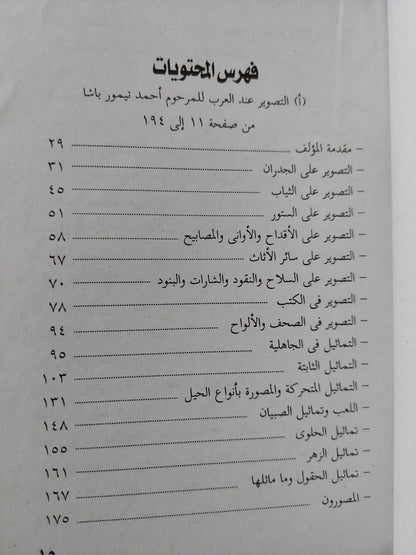 فهرس المحتويات
(أ) التصوير عند العرب للمرحوم أحمد تيمور باشا
من صفحة ١١ إلى ١٩٤
– مقدمة المؤلف ٢٩
– التصوير على الجدران ٣١
– التصوير على الثياب ٤٥
– التصوير على الستور ٥١
– التصوير على الأقداح والأوانى والمصابيح ٥٨
– التصوير على سائر الأثاث ٦٧
– التصوير على السلاح والنقود والشارات والبنود ٧٠
– التصوير فى الكتب ٧٨
– التصوير فى الصحف والألواح ٩٤
– التماثيل فى الجاهلية ٩٥
– التماثيل الثابتة ١٠٣
– التماثيل المتحركة والمصورة بأنواع الحيل ١٣١
– اللعب وتماثيل الصبيان ١٤٨
– تماثيل الحلوى ١٥٥
– تماثيل الزهر ١٦١
– تماثيل الحقول وما ماثلها ١٦٧
– المصورون ١٧٥